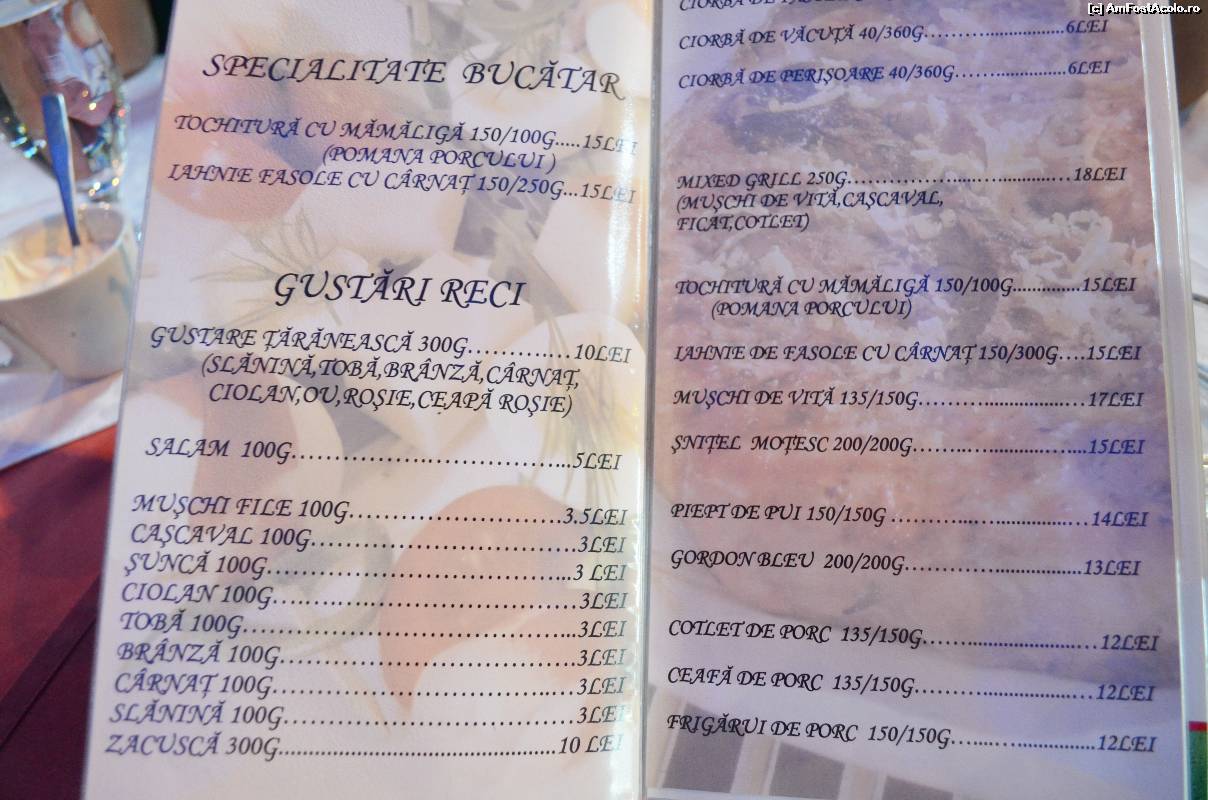 [c] AmFostAcolo.ro
SPECIALITATE BUCĂTAR
TOCHITURĂ CU MĂMĂLIGĂ 150/100G.....15LEI
(POMANA PORCULUI )
IAHNIE FASOLE CU CÂRNAȚ 150/250G...15LEI
GUSTĂRI RECI
GUSTARE ȚĂRĂNEASCĂ 300G...............10LEI
(SLĂNINĂ,TOBĂ,BRÂNZĂ,CÂRNAȚ,
CIOLAN,OU,ROŞIE,CEAPĂ ROŞIE)
SALAM 100G..........................................5LEI
MUŞCHI FILE 100G...............................3.5LEI
CAŞCAVAL 100G......................................3LEI
ŞUNCĂ 100G............................................3 LEI
CIOLAN 100G...........................................3LEI
TOBĂ 100G................................................3LEI
BRÂNZĂ 100G...........................................3LEI
CÂRNAȚ 100G............................................3LEI
SLĂNINĂ 100G..........................................3LEI
ZACUSCĂ 300G..........................................10 LEI
CIORBĂ DE
CIORBĂ DE VĂCUȚĂ 40/360G.........................6LEI
CIORBĂ DE PERIŞOARE 40/360G....................6LEI
MIXED GRILL 250G......................................18LEI
(MUŞCHI DE VITĂ,CAŞCAVAL,
FICAT,COTLET)
TOCHITURĂ CU MĂMĂLIGĂ 150/100G.............15LEI
(POMANA PORCULUI)
IAHNIE DE FASOLE CU CÂRNAȚ 150/300G....15LEI
MUŞCHI DE VITĂ 135/150G...........................17LEI
ŞNIȚEL MOȚESC 200/200G............................15LEI
PIEPT DE PUI 150/150G ................................14LEI
GORDON BLEU 200/200G.............................13LEI
COTLET DE PORC 135/150G............................12LEI
CEAFĂ DE PORC 135/150G.............................12LEI
FRIGĂRUI DE PORC 150/150G.........................12LEI